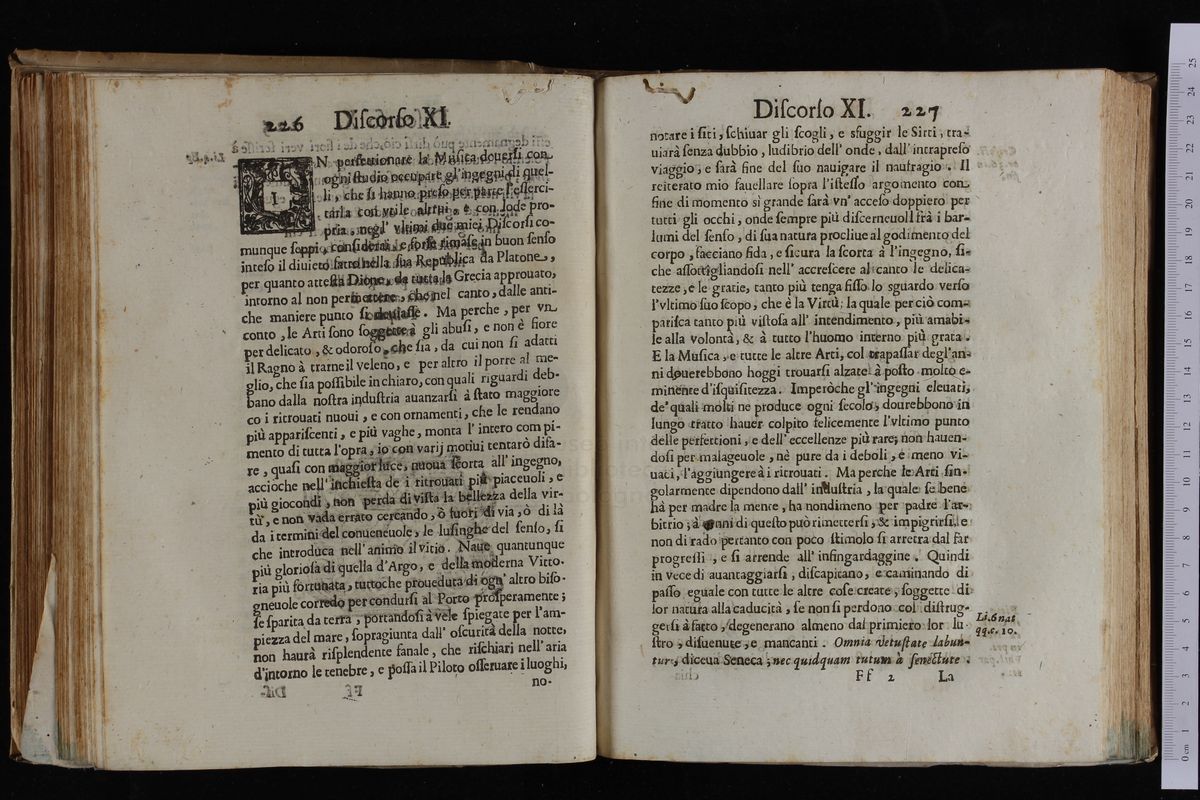 226 Diſcorſo XI.
IN perfettionare la Muſica douerſi con
ogni ſtudio occupare gl'ingegni di quel-
li, che ſi hanno preſo per parte l'eſſerci-
tarla così vtile altrui, e con lode pro-
pria, negl' vltimi due miei Diſcorſi co-
munque ſeppi, conſiderai, e forſe rimaſe in buon ſenſo
inteſo il diuieto fatto nella ſua Republica da Platone,
per quanto atteſta Dione, da tutta la Grecia approuato,
intorno al non permettere, che nel canto, dalle anti-
che maniere punto ſi deuiaſſe. Ma perche, per vn
conto, le Arti ſono ſoggette à gli abuſi, e non è fiore
per delicato, & odoroſo, che ſia, da cui non ſi adatti
il Ragno à trarne il veleno, e per altro il porre al me-
glio, che ſia poſſibile in chiaro, con quali riguardi deb-
bano dalla noſtra induſtria auanzarſi à ſtato maggiore
co i ritrouati nuoui, e con ornamenti, che le rendano
più appariſcenti, e più vaghe, monta l' intero compi-
mento di tutta l'opra, io con varij motiui tentarò diſa-
re, quaſi con maggior luce, nuoua ſcorta all' ingegno,
accioche nell' inchieſta de i ritrouati più piaceuoli, e
più giocondi, non perda di viſta la bellezza della vir-
tù, e non vada errato cercando, ò fuori di via, ò di là
da i termini del conueneuole, le luſinghe del ſenſo, ſi
che introduca nell' animo il vitio. Naue quantunque
più glorioſa di quella d'Argo, e della moderna Vitto-
ria più fortunata, tuttoche proueduta di ogn' altro biſo-
gneuole corredo per condurſi al Porto proſperamente;
ſe ſparita da terra, portandoſi à vele ſpiegate per l'am-
piezza del mare, ſopragiunta dall' oſcurità della notte,
non haurà riſplendente fanale, che riſchiari nell' aria
d'intorno le tenebre, e poſſa il Piloto oſſeruare i luoghi,
no-
Diſcorſo XI. 227
notare i ſiti, ſchiuar gli ſcogli, e sfuggir le Sirti, tra-
uiarà ſenza dubbio, ludibrio dell' onde, dall' intrapreſo
viaggio, e ſarà fine del ſuo nauigare il naufragio. Il
reiterato mio fauellare ſopra l'iſteſſo argomento con
fine di momento sì grande ſarà vn' acceſo doppiero per
tutti gli occhi, onde ſempre più diſcerneuoli frà i bar-
lumi del ſenſo, di ſua natura procliue al godimento del
corpo, facciano fida, e ſicura la ſcorta à l'ingegno, ſi-
che aſſottigliandoſi nell' accreſcere al canto le delica-
tezze, e le gratie, tanto più tenga fiſſo lo sguardo verſo
l'vltimo ſuo ſcopo, che è la Virtù: la quale per ciò com-
pariſca tanto più viſtoſa all' intendimento, più amabi-
le alla volontà, & à tutto l'huomo interno più grata.
E la Muſica, e tutte le altre Arti, col trapaſſar degl'an-
ni douerebbono hoggi trouarſi alzate à poſto molto e-
minente d'iſquiſitezza. Imperòche gl'ingegni eleuati,
de' quali molti ne produce ogni ſecolo, dourebbono in
lungo tratto hauer colpito felicemente l'vltimo punto
delle perfettioni, e dell' eccellenze più rare; non hauen-
doſi per malageuole, nè pure da i deboli, e meno vi-
uaci, l'aggiungere à i ritrouati. Ma perche le Arti ſin-
golarmente dipendono dall' induſtria, la quale ſe bene
hà per madre la mente, ha nondimeno per padre l'ar-
bitrio; à danni di queſto può rimetterſi, & impigrirſi, e
non di rado pertanto con poco ſtimolo ſi arretra dal far
progreſſi, e ſi arrende all' infingardaggine. Quindi
in vece di auantaggiarſi, diſcapitano, e caminando di
paſſo eguale con tutte le altre coſe create, ſoggette di
lor natura alla caducità, ſe non ſi perdono col diſtrug-
gerſi à fatto, degenerano almeno dal primiero lor lu-
ſtro, diſuenute, e mancanti. Omnia vetuſtate labun-
tur, diceua Seneca, nec quidquam tutum à ſenectute.
Li. 6 nat
qq. c. 10.
Ff 2 La